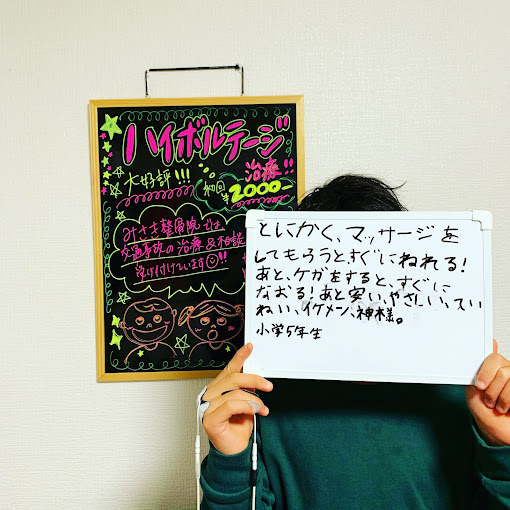 ハイボルテージ
治療!!
大好評!!!
初回
¥2000-
みさき整骨院では、
交通事故の治療&相談
受け付けています
とにかく、マッサージを
してもらうとすぐにねれる!
あと、ケガをすると、すぐに
なおる!あと安い、やさしい、てい
ねい、イケメン、神様。
小学5年生